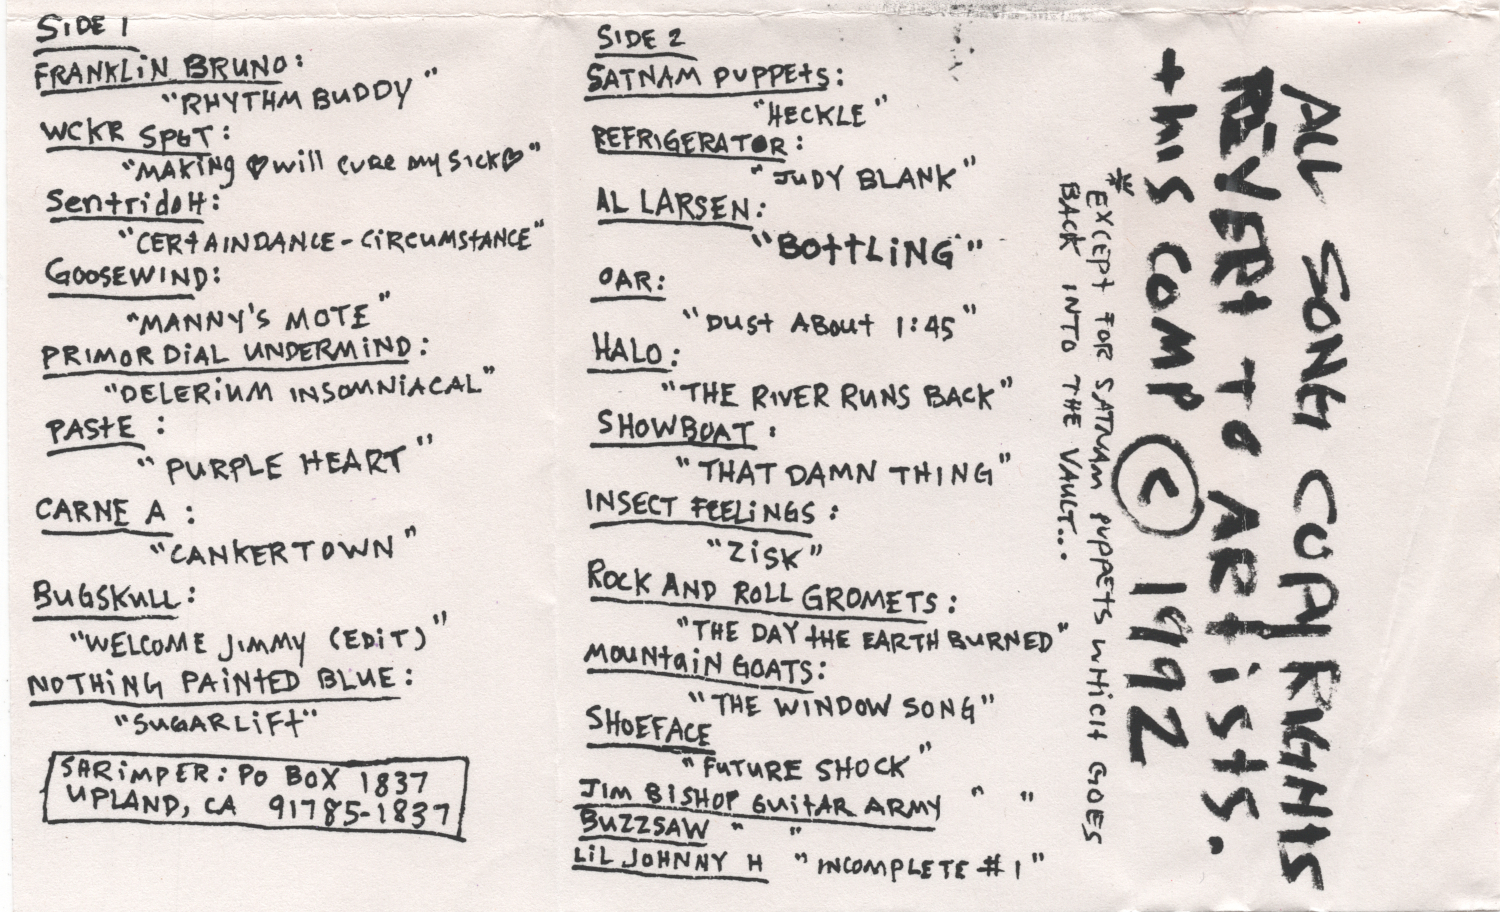 SIDE 1
FRANKLIN BRUNO:
"RHYTHM BUDDY"
WCKR SPGT:
"MAKING ♡ will CURE MY SICK♡"
SentridoH:
"CERtAINDANCE-CIRCUMStANCE"
GOOSEWIND:
"MANNY'S MOTE"
PRIMORDIAL UNDERMIND:
"DELERIUM INSOMNIACAL"
PAStE:
"PURPLE HEART"
CARNE A:
"CANKERTOWN"
BUGSKULL:
"WELCOME JIMMY (EDIT)"
NOTHING PAINtED BLUE:
"SUGARLIFt"
SHRIMPER: PO BOX 1837
UPLAND, CA 91785-1837
SIDE 2
SATNAM PUPPEtS:
"HECKLE"
REFRIGERATOR:
"JUDY BLANK"
AL LARSEN:
"BOttLING"
OAR:
"DUSt ABOUt 1:45"
HALO:
"THE RIVER RUNS BACK"
SHOWBOAT:
"THAT DAMN THING"
INSECT FEELINGS:
"ZISK"
ROCK AND ROLL GROMETS:
"THE DAY tHE EARTH BURNED"
MOUNtAIN GOATS:
"THE WINDOW SONG"
SHOEFACE
"FUTURE SHOCK"
JIM BISHOP GUItAR ARMY " "
BUZZSAW " "
LIL JOHNNY H "INCOMPLETE #1"
ALL SONG COPY RIGHtS
REVERt TO ARtiStS.
tHIS COMP © 1992
* EXCEPt FOR SATNAM PUPPEtS WHICH GOES
BACK INTO THE VAULT...